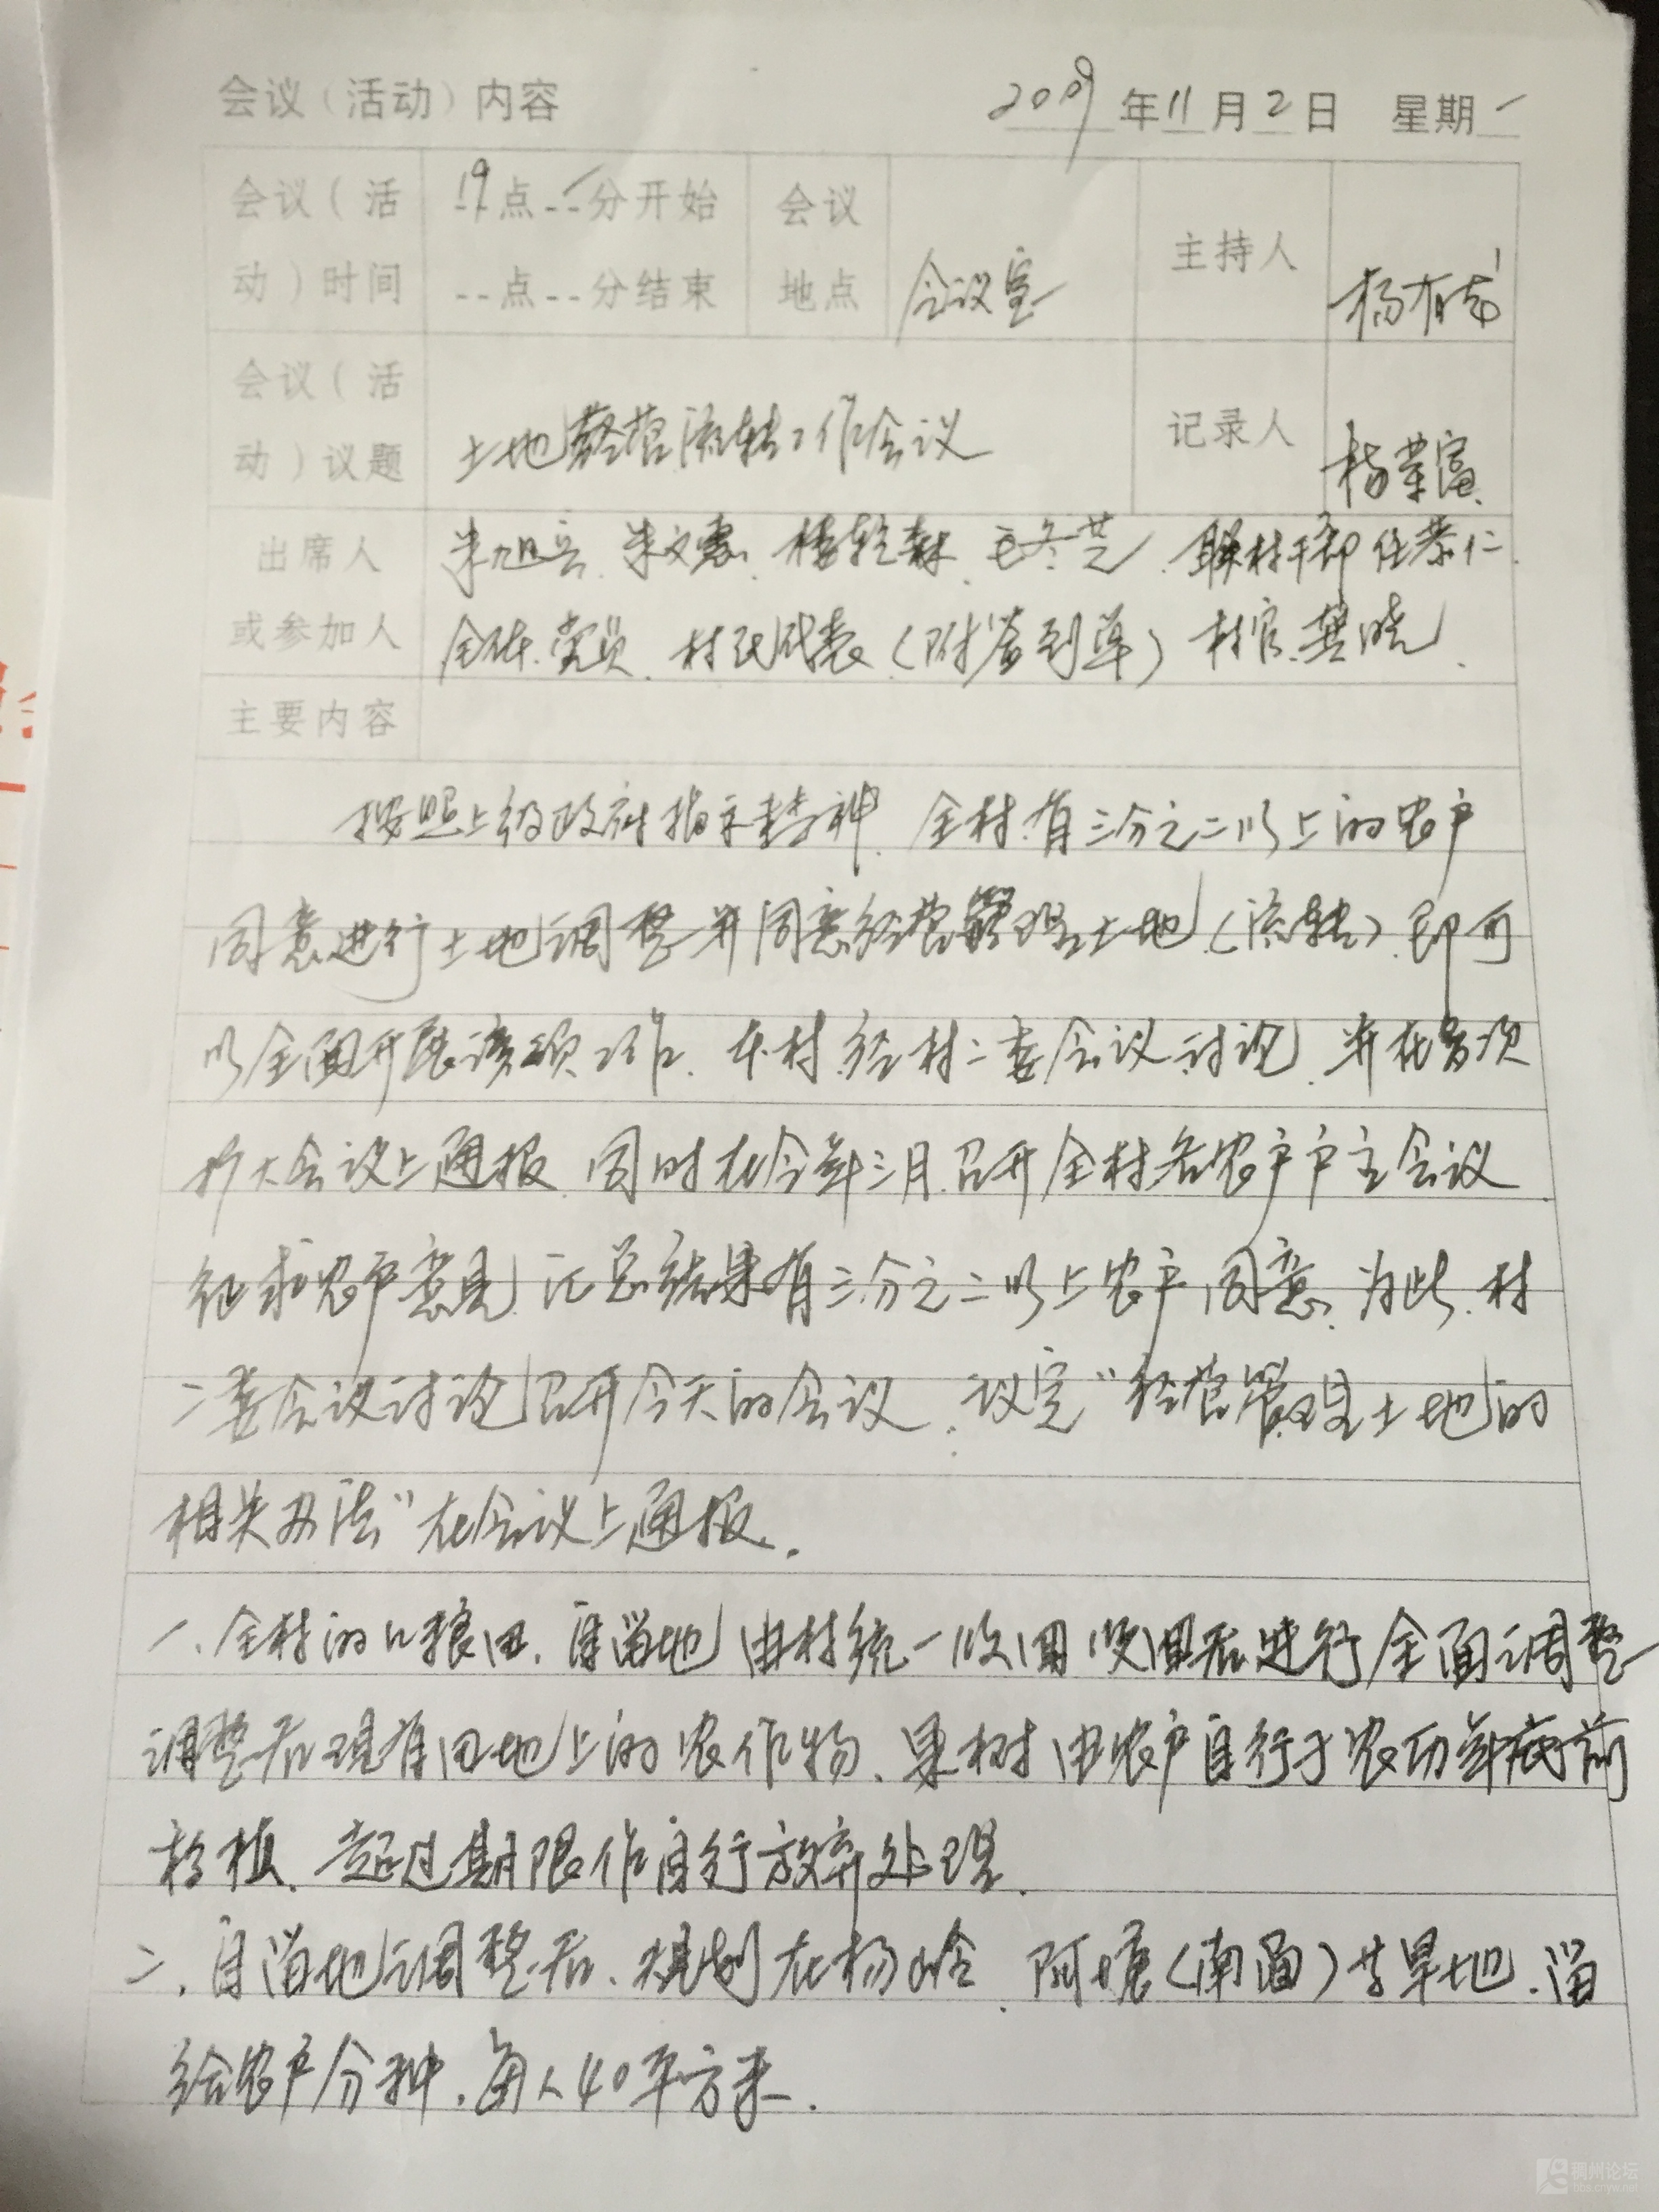 会议（活动）内容 2009年11月2日 星期一
会议（活 19点--分开始 会议
动）时间 --点--分结束 地点 会议室 主持人 杨有
会议（活
动）议题 土地经营流转工作会议 记录人 杨荣富
出席人 朱旭 朱文 楼 毛冬芝 联村干部 任恭仁
或参加人 全体党员、村民代表（附签到单）村官龚晓
主要内容
按照上级政府指示精神、全村有三分之二以上的农户
同意进行土地调整并同意经营管理土地（流转）即可
以全面开展该项工作、本村经村二委会议讨论、并在多次
扩大会议上通报、同时在今年三月召开全村各农户户主会议
征求农户意见、汇总结果有三分之二以上农户同意、为此、村
二委会议讨论召开今天的会议、议定“经营管理土地的
相关办法”在会议上通报.
一、全村的口粮田、自留地由村统一收回收回后进行全面调整
调整后现有田地上的农作物、果树由农户自行于农历年底前
移植、超过期限作自行放弃处理.
二、自留地调整后、规划在杨 、阿塘（南面）等旱地、留
给农户分种、每人40平方米.
稠州论坛
bbs.cnyw.net